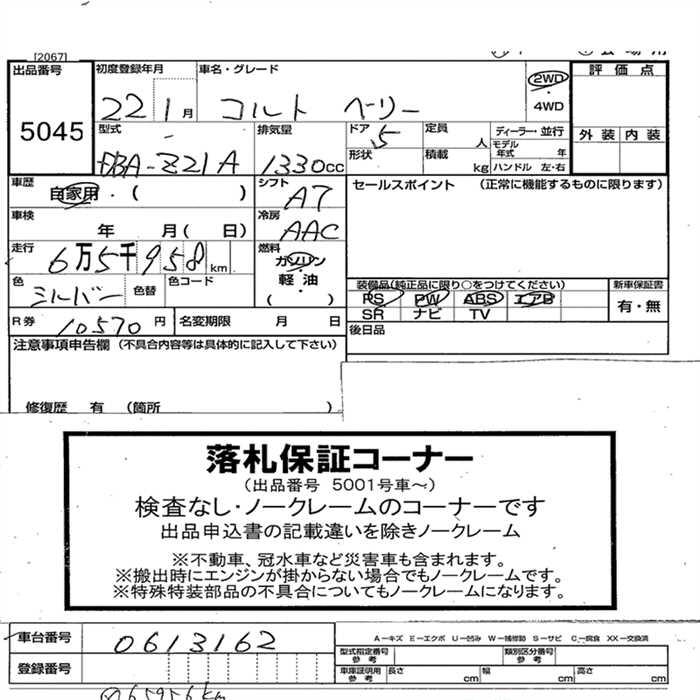 [2067]
出品番号
5045
初度登録年月 22 1月
車名・グレード コルト ベーリー
2WD
4WD
評価点
外装 内装
型式 DBA-Z21A
排気量 1330cc
ドア 5
形状
定員 人
積載 kg
ディーラー・並行
モデル年式 年
ハンドル 左・右
車歴 自家用・( )
シフト A7
セールスポイント (正常に機能するものに限ります)
車検 年 月( 日)
冷房 AAC
走行 6万5千958km
燃料 ガソリン
軽油
( )
色 シルバー 色替 色コード
装備品(純正品に限り○をつけてください)
PS PW ABS エアB
SR ナビ TV
新車保証書
有・無
R券 10570円 名変期限 月 日
後日品
注意事項申告欄 (不具合内容等は具体的に記入して下さい)
修復歴 有 (箇所 )
落札保証コーナー
(出品番号 5001号車~)
検査なし・ノークレームのコーナーです
出品申込書の記載違いを除きノークレーム
※不動車、冠水車など災害車も含まれます。
※搬出時にエンジンが掛からない場合でもノークレームです。
※特殊特装部品の不具合についてもノークレームになります。
車台番号 0613162
A-キズ E-エクボ U-凹み W-補修跡 S-サビ C-腐食 XX-交換済
登録番号
型式指定番号 参考
類別区分番号 参考
車庫証明用 参考 長さ cm 幅 cm 高さ cm
65956km